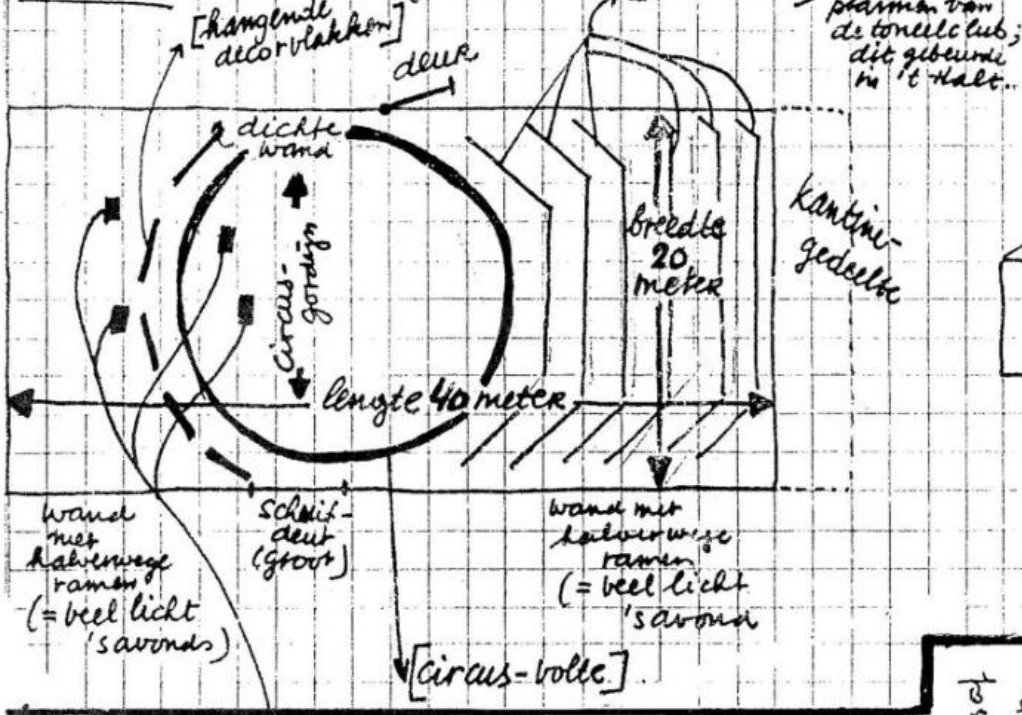 [hangende
decorvlakken]
plannen van
de toneelclub;
dit gebeurde
in 't Halt..
deur
dichte
wand
circus-
gordijn
breedte
20
meter
kantine-
gedeelte
lengte 40 meter
wand
met
halverwege
ramen
(= veel licht
's avonds)
schuif-
deur
(groot)
wand met
halverwege
ramen
(= veel licht
's avond
[circus-volte]